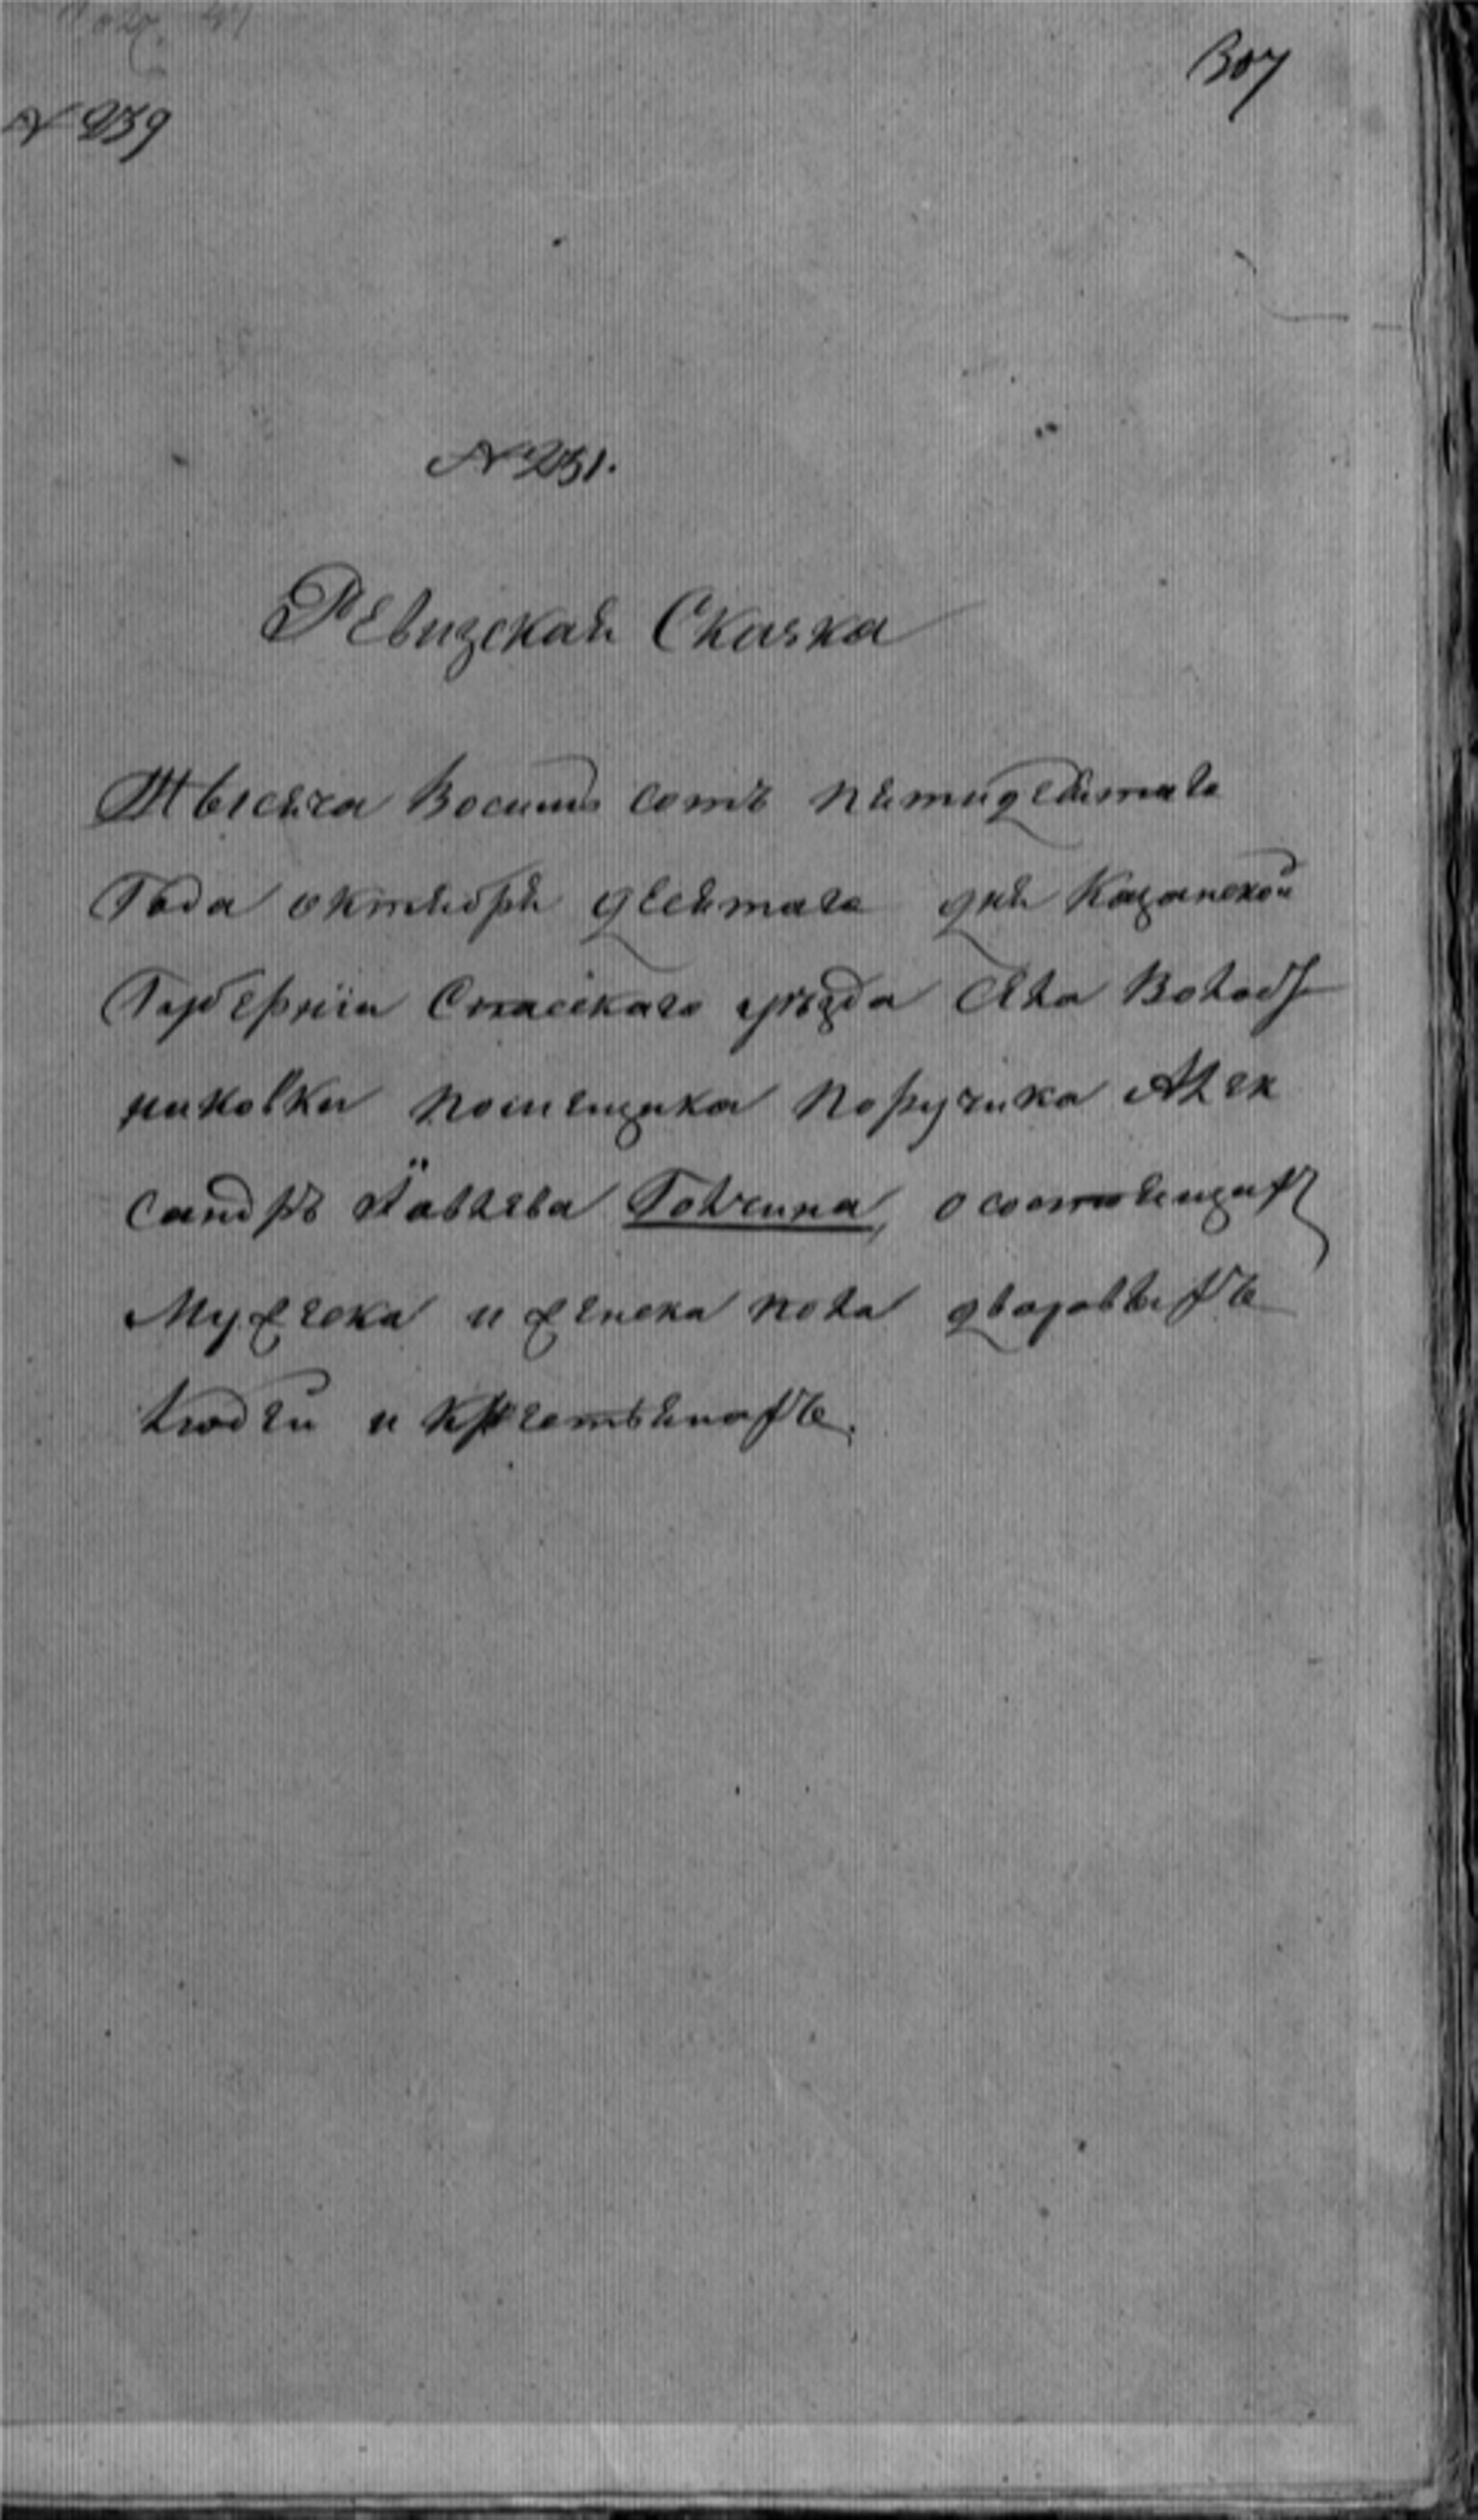 307
№ 239
№ 231.
Ревизская Скаска
Тысяча Восимь сотъ пятидесятаго
Года октября десятаго дня Казанской
Губернiи Спасскаго уѣзда Села Володь
никовки помещика Поручика Алек
сандръ Павлева Толченна, о состоящихъ
Мужеска и женска пола дворовыхъ
людей и крестьянахъ.